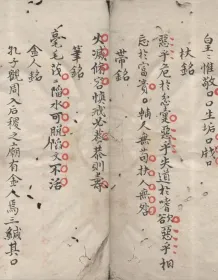 皇〻惟敬口生垢口戕口
杖銘
惡乎危於忿疐惡乎失道於嗜欲惡乎相
忘於富貴輔人無苟扶人無咎
帶銘
火滅修容慎戒必恭恭則壽
筆銘
毫毛茂〻陷水可脫陷文不活
金人銘
孔子觀周入后稷之廟有金人焉三緘其口